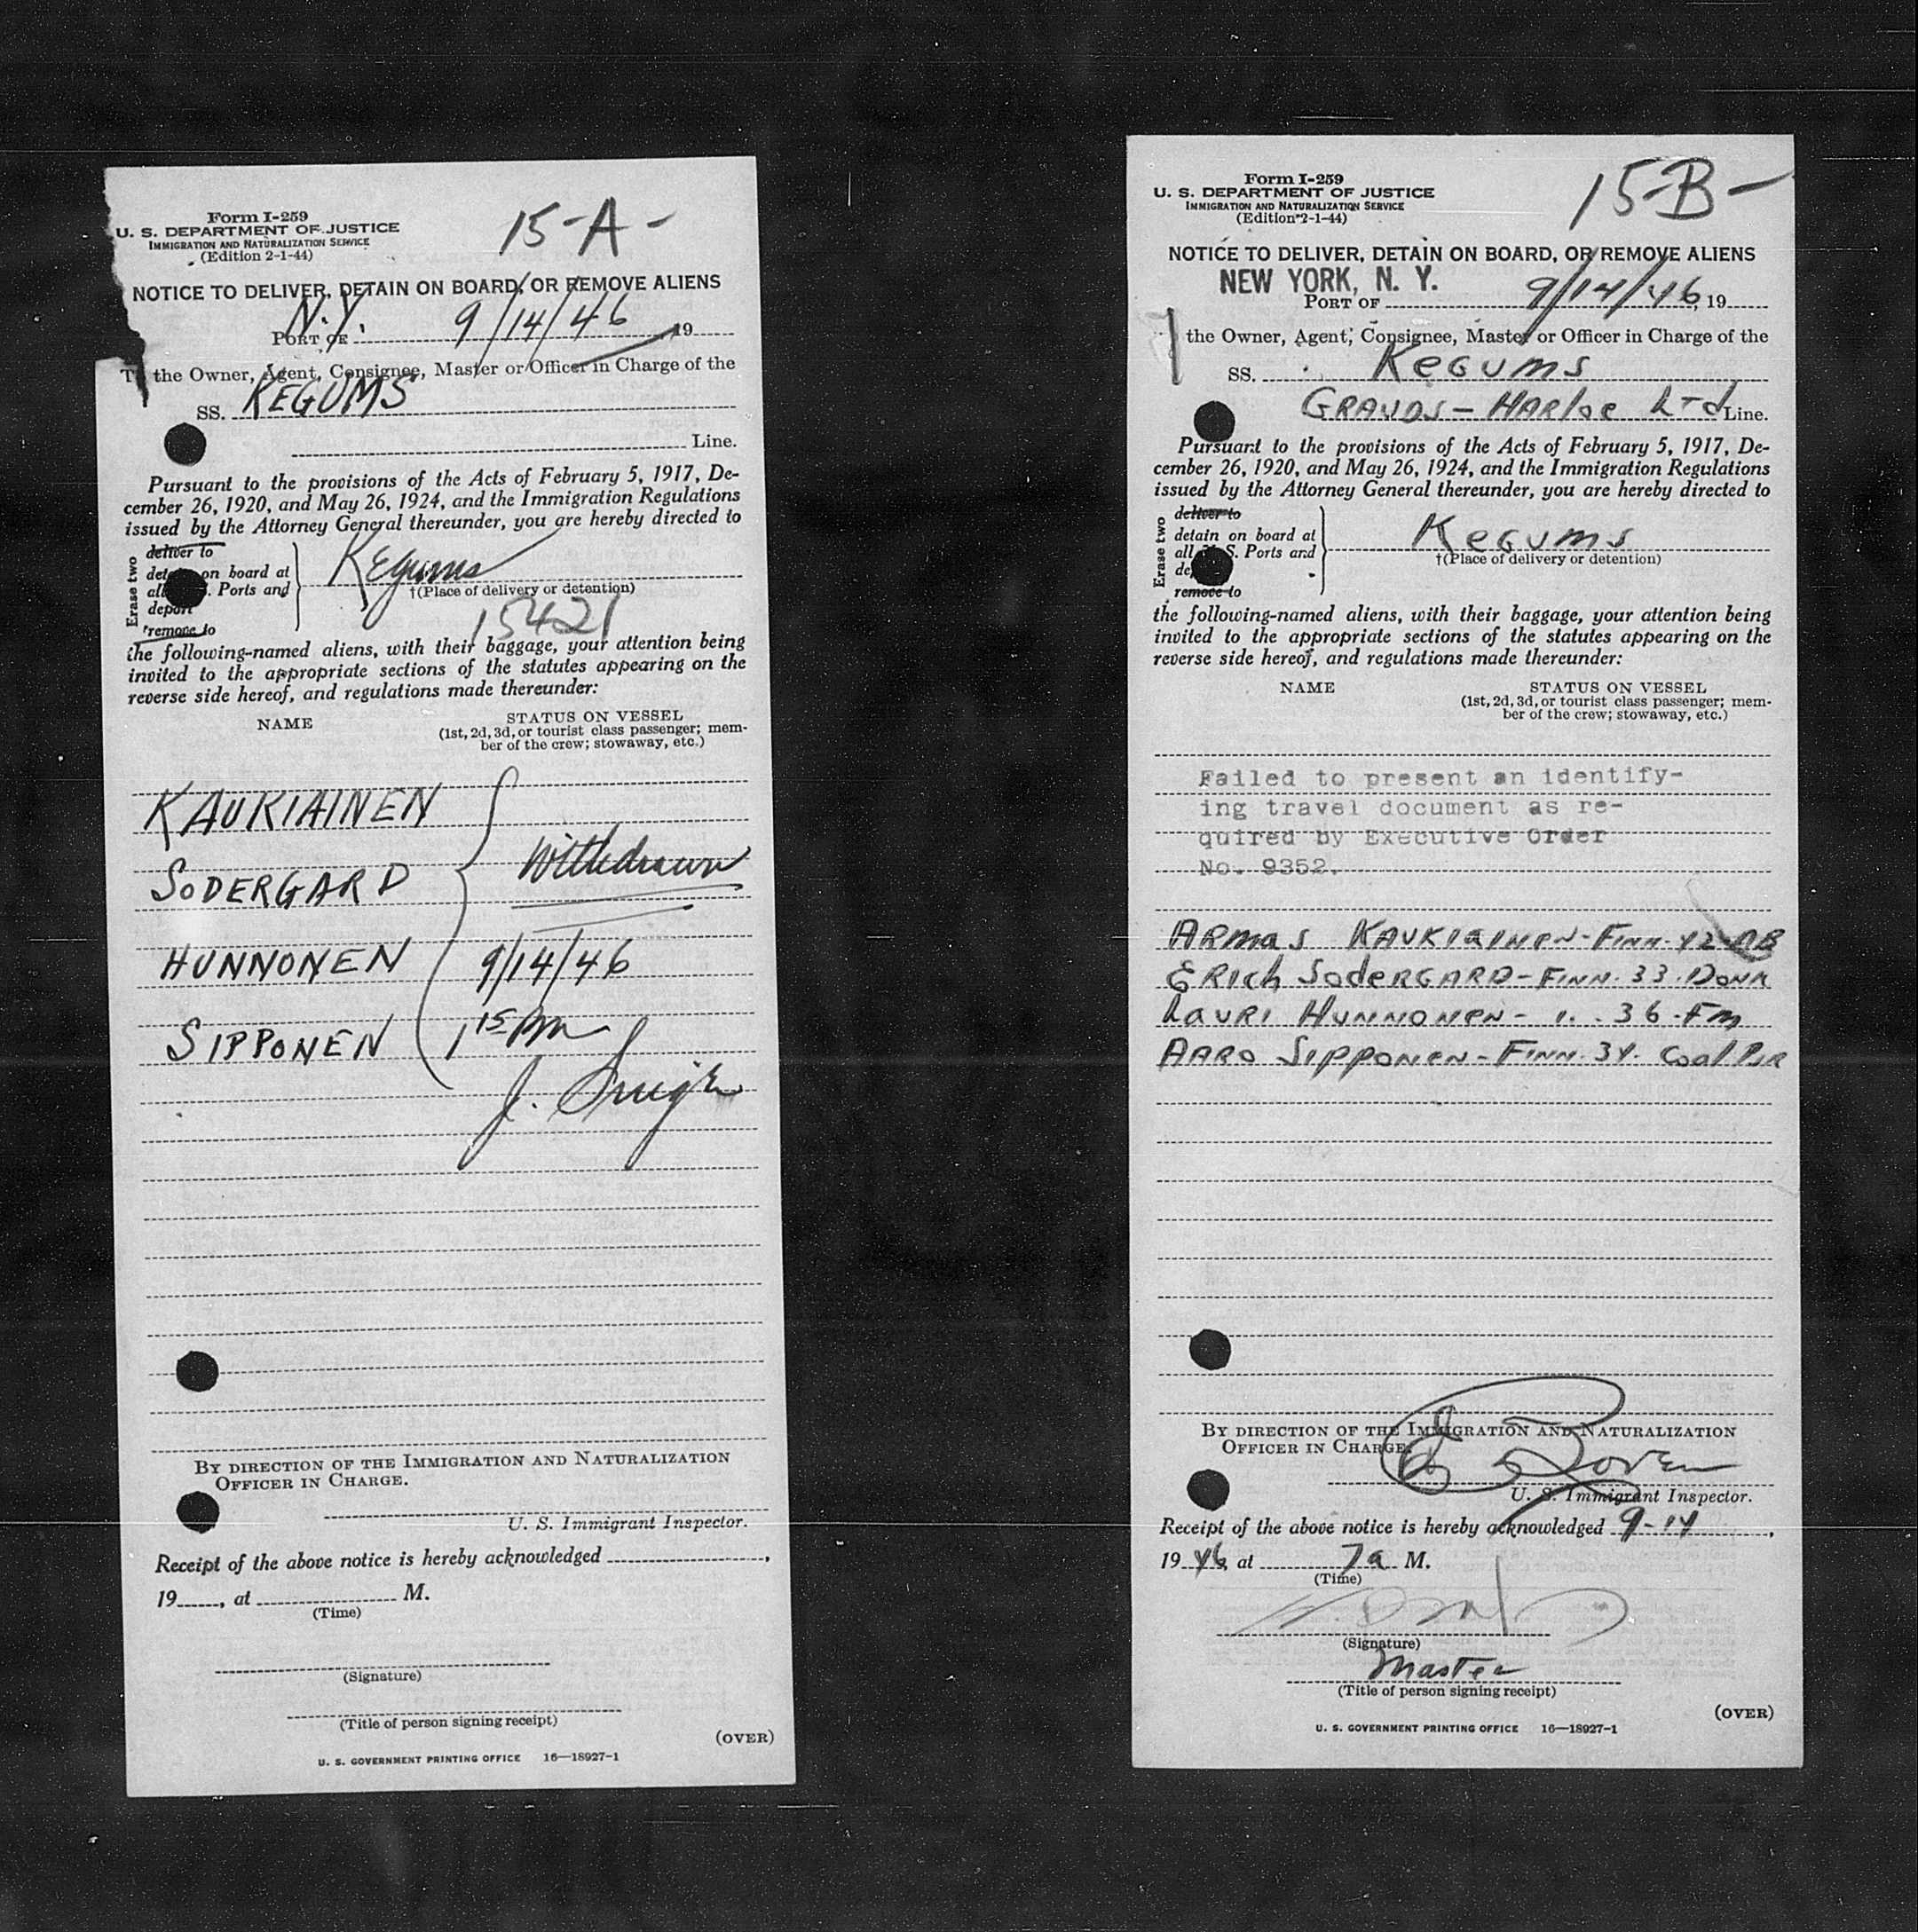 15-A-
Form I-259
U. S. DEPARTMENT OF JUSTICE
IMMIGRATION AND NATURALIZATION SERVICE
(Edition 2-1-44)
NOTICE TO DELIVER, DETAIN ON BOARD, OR REMOVE ALIENS
N.Y. 9/14/46
PORT OF 19
the Owner, Agent, Consignee, Master or Officer in Charge of the
SS. KEGUMS
Line.
Pursuant to the provisions of the Acts of February 5, 1917, De-
cember 26, 1920, and May 26, 1924, and the Immigration Regulations
issued by the Attorney General thereunder, you are hereby directed to
Erase two
deliver to
on board at
Ports and
deport
remove to
Kegums
†(Place of delivery or detention)
15421
the following-named aliens, with their baggage, your attention being
invited to the appropriate sections of the statutes appearing on the
reverse side hereof, and regulations made thereunder:
NAME STATUS ON VESSEL
(1st, 2d, 3d, or tourist class passenger; mem-
ber of the crew; stowaway, etc.)
KAUKIAINEN
SODERGARD Withdrawn
HUNNONEN 9/14/46
SIPPONEN 1 15 PM
J.
BY DIRECTION OF THE IMMIGRATION AND NATURALIZATION
OFFICER IN CHARGE.
U. S. Immigrant Inspector.
Receipt of the above notice is hereby acknowledged ,
19 , at M.
(Time)
(Signature)
(Title of person signing receipt)
(OVER)
U. S. GOVERNMENT PRINTING OFFICE 16—18927-1
15-B-
Form I-259
U. S. DEPARTMENT OF JUSTICE
IMMIGRATION AND NATURALIZATION SERVICE
(Edition 2-1-44)
NOTICE TO DELIVER, DETAIN ON BOARD, OR REMOVE ALIENS
NEW YORK, N. Y.
PORT OF 9/14/46, 19
the Owner, Agent, Consignee, Master or Officer in Charge of the
SS. Kegums
GRAUDS - HARloe LTd Line.
Pursuant to the provisions of the Acts of February 5, 1917, De-
cember 26, 1920, and May 26, 1924, and the Immigration Regulations
issued by the Attorney General thereunder, you are hereby directed to
Erase two
deliver to
detain on board at
all S. Ports and
remove to
Kegums
†(Place of delivery or detention)
the following-named aliens, with their baggage, your attention being
invited to the appropriate sections of the statutes appearing on the
reverse side hereof, and regulations made thereunder:
NAME STATUS ON VESSEL
(1st, 2d, 3d, or tourist class passenger; mem-
ber of the crew; stowaway, etc.)
Failed to present an identify-
ing travel document as re-
quired by Executive Order
No. 9352.
ARMAS KAUKIAINEN - FINN. 42 - AB
ERICH SODERGARD - FINN. 33. DONK
LAURI HUNNONEN - " . 36 - FM
AARO SIPPONEN - FINN. 34. Coal Psr
BY DIRECTION OF THE IMMIGRATION AND NATURALIZATION
OFFICER IN CHARGE.
U. S. Immigrant Inspector.
Receipt of the above notice is hereby acknowledged 9-14,
19 46, at 7a M.
(Time)
(Signature)
Master
(Title of person signing receipt)
(OVER)
U. S. GOVERNMENT PRINTING OFFICE 16—18927-1